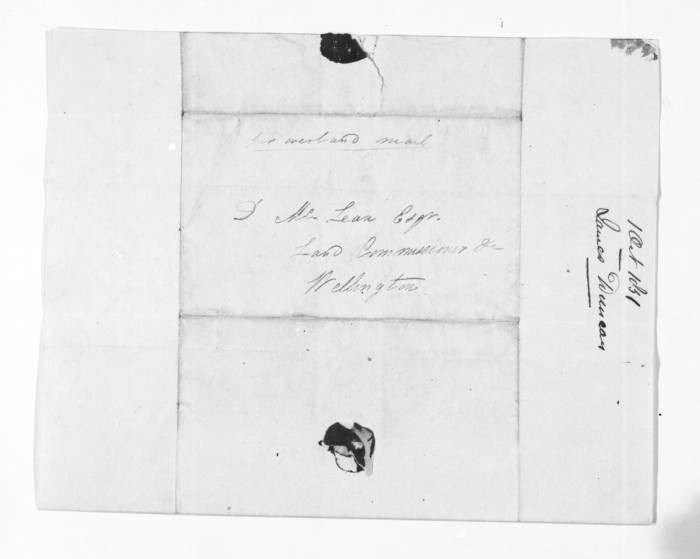 per overland mail
D McLean Esqr.
Land Commissioner &c
Wellington
1 Oct 1851
James Duncan